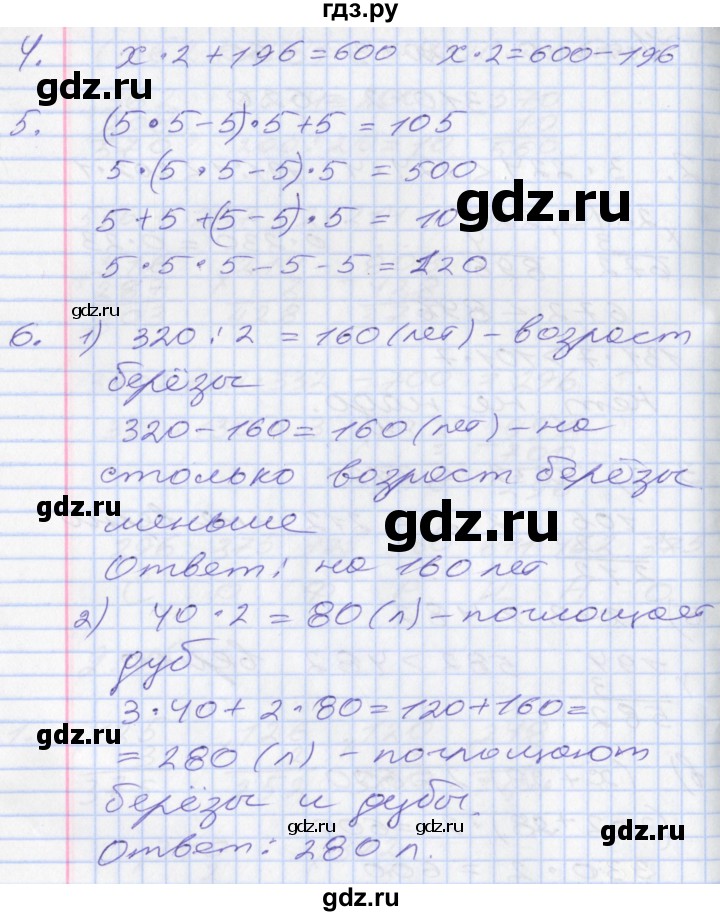 гдз.ру
4. x · 2 + 196 = 600 x · 2 = 600 - 196
5. (5 · 5 - 5) · 5 + 5 = 105
5 · (5 · 5 - 5) · 5 = 500
gdz.ru
5 + 5 + (5 - 5) · 5 = 10
gdz.ru
5 · 5 · 5 - 5 - 5 = 120
gdz.ru
6. 1) 320 : 2 = 160 (лет) - возраст
берёзы
320 - 160 = 160 (лет) - на
столько возраст берёзы
gdz.ru
меньше
gdz.ru
Ответ: на 160 лет
2) 40 · 2 = 80 (л) - поглощает
дуб
3 · 40 + 2 · 80 = 120 + 160 =
gdz.ru
= 280 (л) - поглощают
берёзы и дубы.
gdz.ru gdz.ru gdz.ru
Ответ: 280 л.
гдз.ру